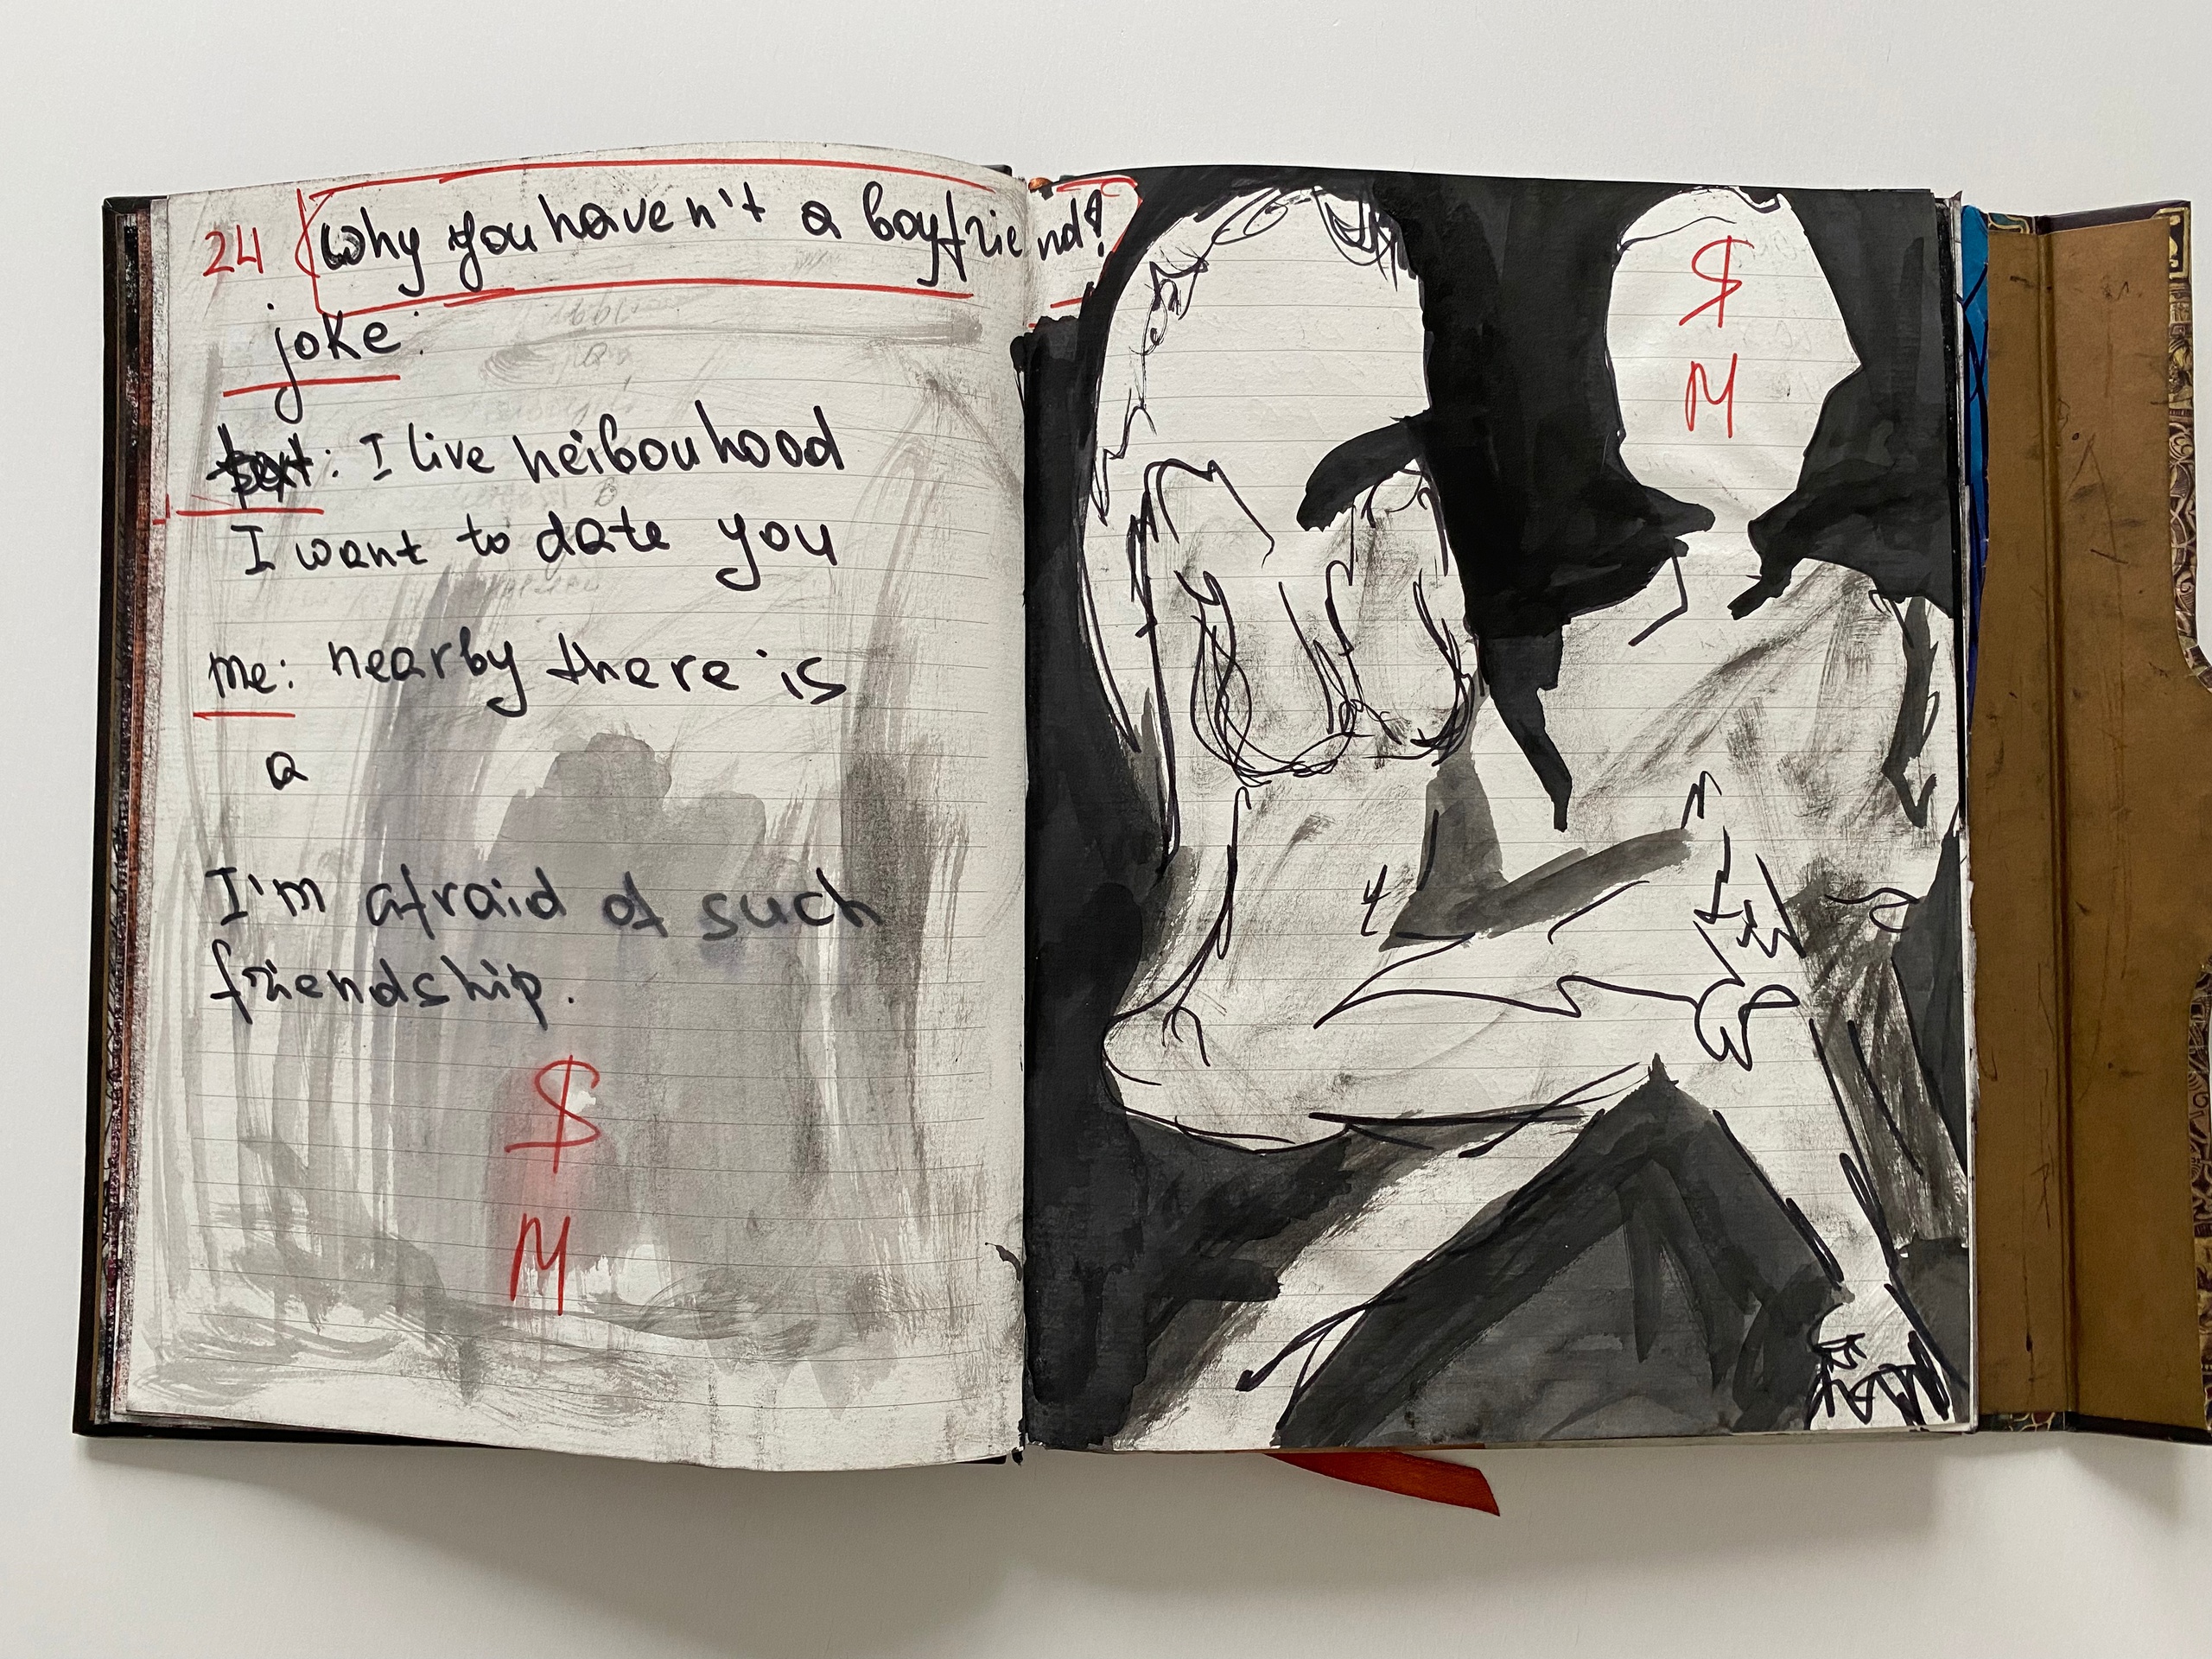 24 Why you haven't a boyfriend?
joke:
text: I live heibouhood
I want to date you
me: nearby there is
a
I'm afraid of such
friendship.
$
M
$
M